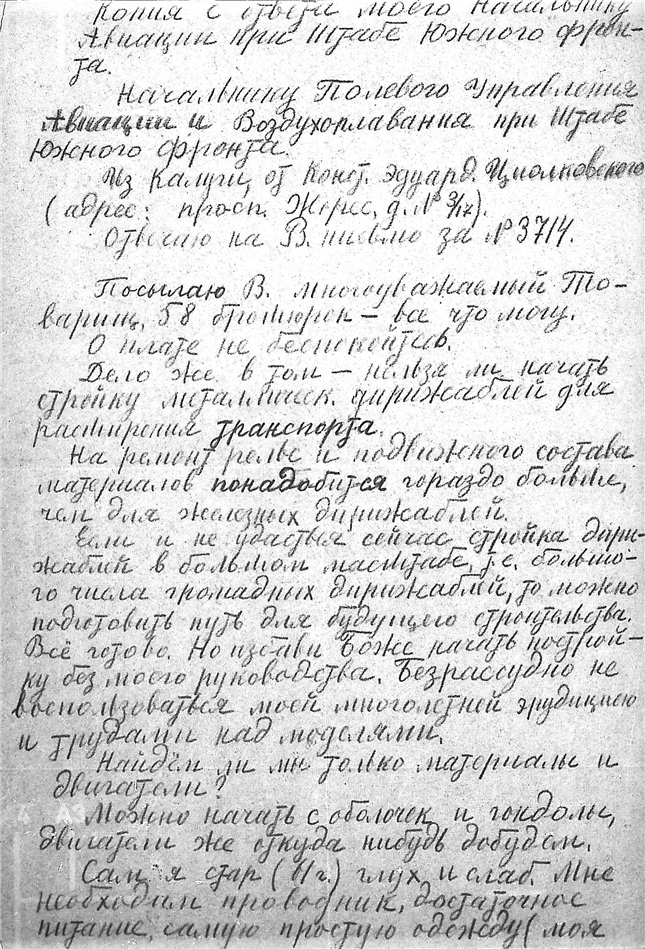 Копия с ответа моего Начальнику
Авиации при Штабе Южного фрон-
та.
Начальнику Полевого Управления
Авиации и Воздухоплавания при Штабе
Южного фронта.
Из Калуги, от Конст. Эдуард. Циолковского
(адрес: просп. Жорес, д. № 3/17).
Отвечаю на В. письмо за № 3714.
Посылаю В. многоуважаемый То-
варищ, 58 брошюрок — все что могу.
О плате не беспокойтесь.
Дело же в том — нельзя ли начать
стройку металлическ. дирижаблей для
расширения транспорта.
На ремонт рельс и подвижного состава
материалов понадобится гораздо больше,
чем для железных дирижаблей.
Если и не удастся сейчас стройка дири-
жаблей в большом масштабе, т.е. большо-
го числа громадных дирижаблей, то можно
подготовить путь для будущего строительства.
Всё готово. Но избави Боже начать построй-
ку без моего руководства. Безрассудно не
воспользоваться моей многолетней эрудициею
и трудами над моделями.
Найдём ли мы только материалы и
двигатели?
Можно начать с оболочек и гондолы,
двигатели же откуда нибудь добудем.
Сам я стар ( г.) глух и слаб. Мне
необходим проводник, достаточное
питание, самую простую одежду (моя